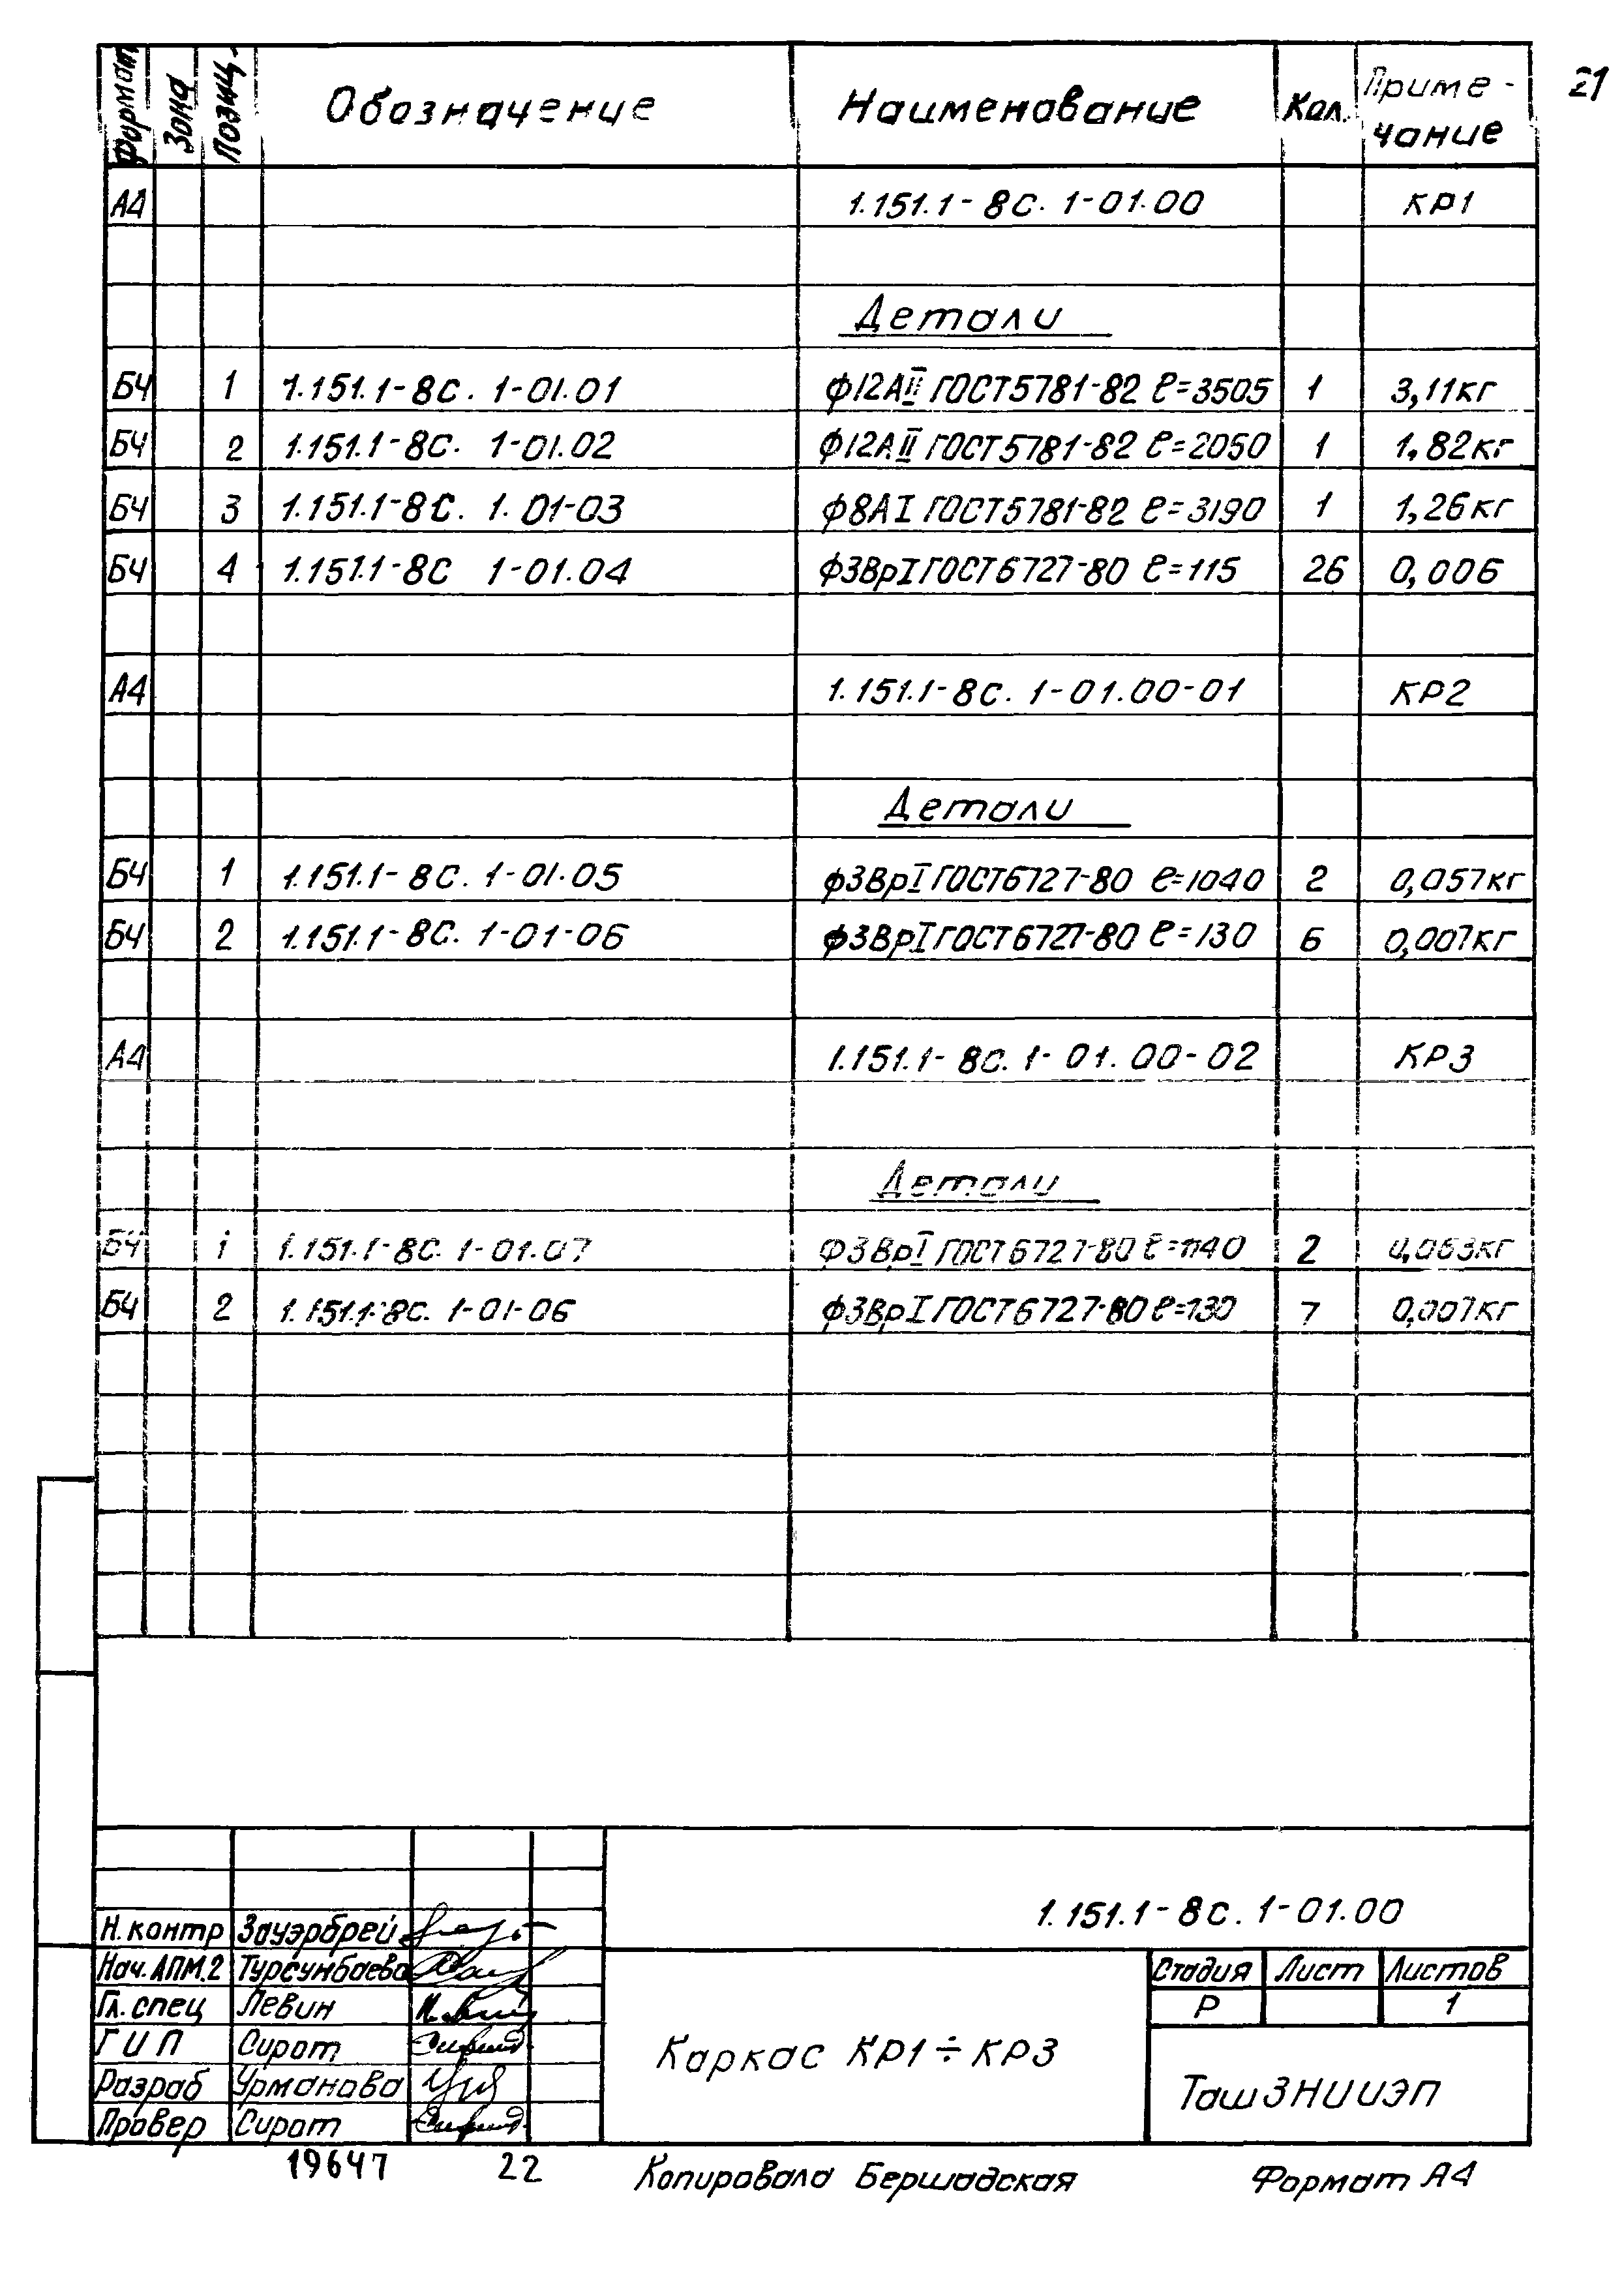 21
Формат Зона Позиц. Обозначение Наименование Кол. Приме-
чание
А4 1.151.1-8С. 1-01.00 КР1
Детали
БЧ 1 1.151.1-8С. 1-01.01 ф12АII ГОСТ5781-82 ℓ=3505 1 3,11кг
БЧ 2 1.151.1-8С. 1-01.02 ф12АII ГОСТ5781-82 ℓ=2050 1 1,82кг
БЧ 3 1.151.1-8С. 1.01-03 ф8АI ГОСТ5781-82 ℓ=3190 1 1,26кг
БЧ 4 1.151.1-8С 1-01.04 ф3ВрI ГОСТ6727-80 ℓ=115 26 0,006
А4 1.151.1-8С. 1-01.00-01 КР2
Детали
БЧ 1 1.151.1-8С. 1-01.05 ф3ВрI ГОСТ6727-80 ℓ=1040 2 0,057кг
БЧ 2 1.151.1-8С. 1-01-06 ф3ВрI ГОСТ6727-80 ℓ=130 6 0,007кг
А4 1.151.1-8С. 1-01.00-02 КР3
Детали
БЧ 1 1.151.1-8С. 1-01.07 ф3ВрI ГОСТ6727-80 ℓ=1140 2 0,063кг
БЧ 2 1.151.1-8С. 1-01-06 ф3ВрI ГОСТ6727-80 ℓ=130 7 0,007кг
1.151.1-8С. 1-01.00
Н.контр Зауэрбрей
Нач.АПМ.2 Турсунбаева
Гл.спец Левин
ГИП Сирот
Разраб Урманова
Провер Сирот
Каркас КР1÷КР3
Стадия Лист Листов
Р 1
ТашЗНИИЭП
19647 22 Копировала Бершадская Формат А4